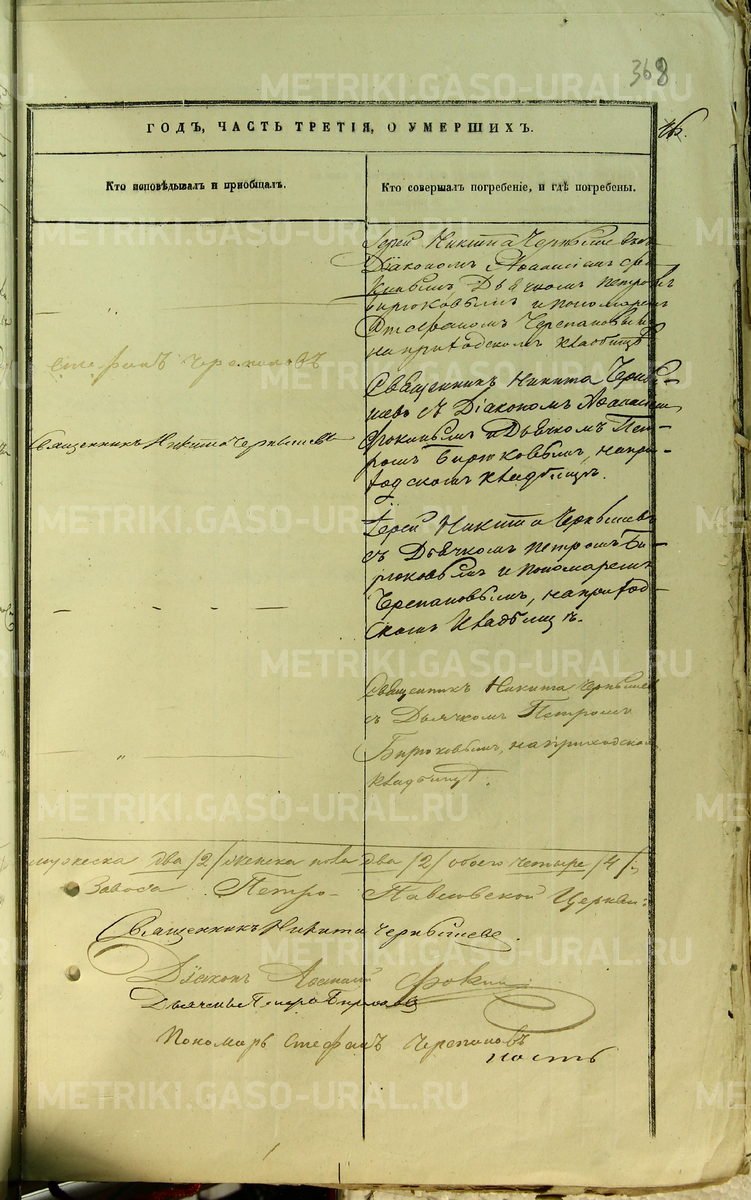 368
ГОДЪ, ЧАСТЬ ТРЕТІЯ, О УМЕРШИХЪ.
Кто исповѣдывалъ и пріобщалъ.
Кто совершалъ погребеніе, и гдѣ погребены.
METRIKI.GASO-URAL.RU
Іерей Никита Чернышевъ съ
Діакономъ Аѳанасіемъ Фо-
кинымъ Дьячкомъ Петромъ
Бирюковымъ и пономаремъ
Стефаномъ Черепановымъ
на приходскомъ кладбищѣ
Стефанъ Черепановъ
Священникъ Никита Черны-
шевъ съ Діакономъ Аѳанасіемъ
Фокинымъ и Дьячкомъ Пет-
ромъ Бирюковымъ, на при-
ходскомъ кладбищѣ.
Священникъ Никита Чернышевъ
Іерей Никита Чернышевъ
съ Дьячкомъ Петромъ Би-
рюковымъ и пономаремъ
Черепановымъ, на приход-
скомъ кладбищѣ.
Священникъ Никита Чернышев
съ Дьячкомъ Петромъ
Бирюковымъ, на приходском
кладбищѣ.
мужеска два /2/ женска пола два /2/ обоего четыре /4/
Завода Петро-Павловской Церкви:
Священникъ Никита Чернышевъ.
Діаконъ Аѳанасій Фокинъ
Дьячекъ Петръ Бирюковъ
Пономарь Стефанъ Черепановъ
ность